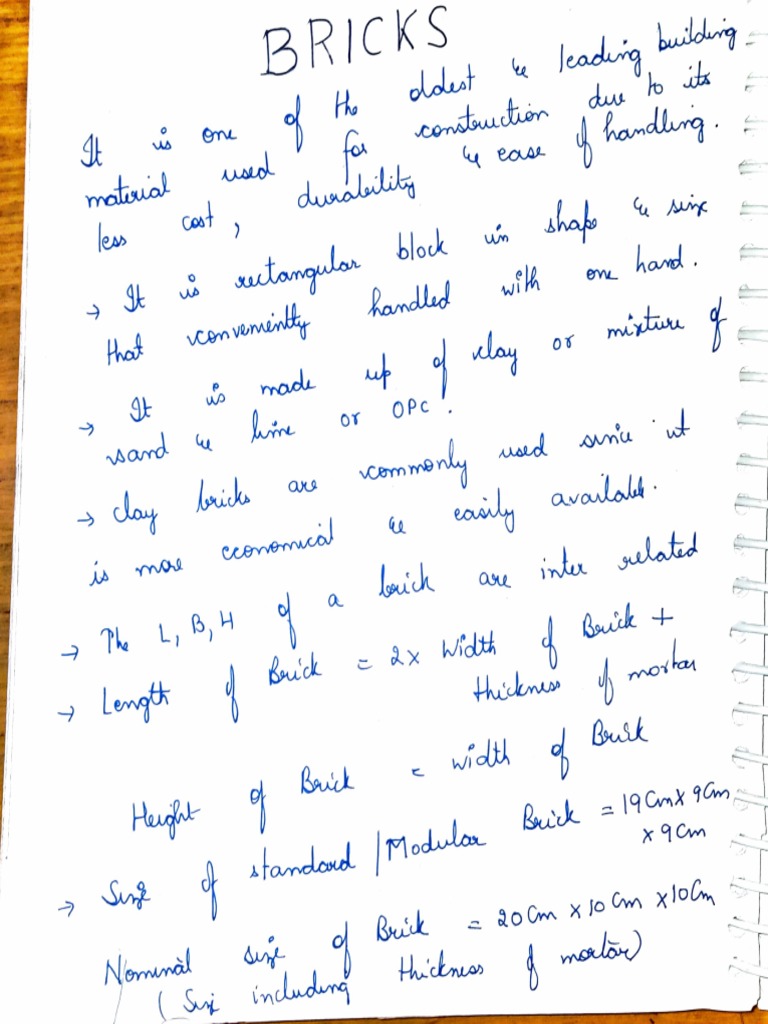 BRICKS
It is one of the oldest & leading building
material used for construction due to its
less cost, durability & ease of handling.
→ It is rectangular block in shape & size
that conveniently handled with one hand.
→ It is made up of clay or mixture of
sand & lime or OPC.
→ Clay bricks are commonly used since it
is more economical & easily available.
→ The L, B, H of a brick are inter related
→ Length of Brick = 2x Width of Brick +
thickness of mortar
Height of Brick = width of Brick
→ Size of standard / Modular Brick = 19 Cm x 9 Cm
x 9 Cm
Nominal size of Brick = 20 Cm x 10 Cm x 10 Cm
(Size including thickness of mortar)